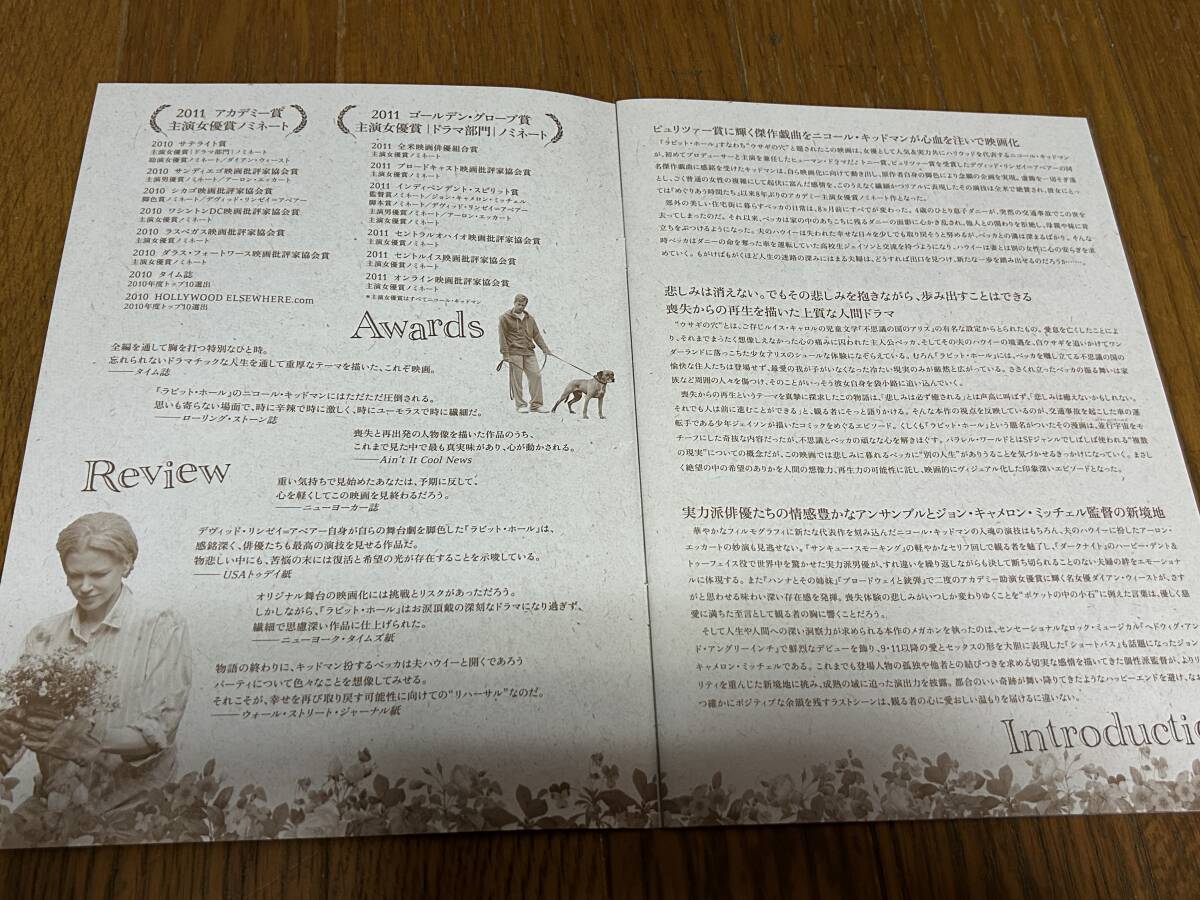 2011 アカデミー賞
主演女優賞ノミネート
2010 サテライト賞
主演女優賞[ドラマ部門]ノミネート
助演女優賞ノミネート/ダイアン・ウィースト
2010 サンディエゴ映画批評家協会賞
主演男優賞ノミネート/アーロン・エッカート
2010 シカゴ映画批評家協会賞
脚色賞ノミネート/デヴィッド・リンゼイ=アベアー
2010 ワシントンDC映画批評家協会賞
主演女優賞ノミネート
2010 ラスベガス映画批評家協会賞
主演女優賞ノミネート
2010 ダラス・フォートワース映画批評家協会賞
主演女優賞ノミネート
2010 タイム誌
2010年度トップ10選出
2010 HOLLYWOOD ELSEWHERE.com
2010年度トップ10選出
2011 ゴールデン・グローブ賞
主演女優賞[ドラマ部門]ノミネート
2011 全米映画俳優組合賞
主演女優賞ノミネート
2011 ブロードキャスト映画批評家協会賞
主演女優賞ノミネート
2011 インディペンデント・スピリット賞
監督賞ノミネート/ジョン・キャメロン・ミッチェル
脚本賞ノミネート/デヴィッド・リンゼイ=アベアー
主演男優賞ノミネート/アーロン・エッカート
主演女優賞ノミネート
2011 セントラルオハイオ映画批評家協会賞
主演女優賞ノミネート
2011 セントルイス映画批評家協会賞
主演女優賞ノミネート
2011 オンライン映画批評家協会賞
主演女優賞ノミネート
*主演女優賞はすべてニコール・キッドマン
Awards
全編を通して胸を打つ特別なひと時。
忘れられないドラマチックな人生を通して重厚なテーマを描いた、これぞ映画。
——タイム誌
『ラビット・ホール』のニコール・キッドマンにはただただ圧倒される。
思いも寄らない場面で、時に辛辣で時に激しく、時にユーモラスで時に繊細だ。
——ローリング・ストーン誌
喪失と再出発の人物像を描いた作品のうち、
これまで見た中で最も真実味があり、心が動かされる。
——Ain't It Cool News
Review
重い気持ちで見始めたあなたは、予期に反して、
心を軽くしてこの映画を見終わるだろう。
——ニューヨーカー誌
デヴィッド・リンゼイ=アベアー自身が自らの舞台劇を脚色した『ラビット・ホール』は、
感銘深く、俳優たちも最高の演技を見せる作品だ。
物悲しい中にも、苦悩の末には復活と希望の光が存在することを示唆している。
——USAトゥデイ紙
オリジナル舞台の映画化には挑戦とリスクがあっただろう。
しかしながら、『ラビット・ホール』はお涙頂戴の深刻なドラマになり過ぎず、
繊細で思慮深い作品に仕上げられた。
——ニューヨーク・タイムズ紙
物語の終わりに、キッドマン扮するベッカは夫ハウイーと開くであろう
パーティについて色々なことを想像してみせる。
それこそが、幸せを再び取り戻す可能性に向けての“リハーサル”なのだ。
——ウォール・ストリート・ジャーナル紙
ピュリツァー賞に輝く傑作戯曲をニコール・キッドマンが心血を注いで映画化
『ラビット・ホール』すなわち“ウサギの穴”と題されたこの映画は、女優として人気&実力共にハリウッドを代表するニコール・キッドマン
が、初めてプロデューサーと主演を兼任したヒューマン・ドラマだ。トニー賞、ピュリツァー賞を受賞したデヴィッド・リンゼイ=アベアーの同
名傑作戯曲に感銘を受けたキッドマンは、自ら映画化に向けて動き出し、原作者自身の脚色による念願の企画を実現。
とし、ごく普通の女性の複雑にして起伏に富んだ感情を、このうえなく繊細かつリアルに表現したその演技は全米で絶賛され、彼女にとっ
ては『めぐりあう時間たち』以来8年ぶりのアカデミー主演女優賞ノミネート作となった。
郊外の美しい住宅街に暮らすベッカの日常は、8ヵ月前にすべてが変わった。4歳のひとり息子ダニーが、突然の交通事故でこの世を
去ってしまったのだ。それ以来、ベッカは家の中のあちこちに残るダニーの面影に心かき乱され、他人との関わりを拒絶し、母親や妹に苛
立ちをぶつけるようになった。夫のハウイーは失われた幸せな日々を少しでも取り戻そうと努めるが、ベッカとの溝は深まるばかり。そんな
時ベッカはダニーの命を奪った車を運転していた高校生ジェイソンと交流を持つようになり、ハウイーは妻とは別の女性に心の安らぎを求
めていく。もがけばもがくほど人生の迷路の深みにはまる夫婦は、どうすれば出口を見つけ、新たな一歩を踏み出せるのだろうか……。
悲しみは消えない。でもその悲しみを抱きながら、歩み出すことはできる
喪失からの再生を描いた上質な人間ドラマ
“ウサギの穴”とは、ご存じルイス・キャロルの児童文学『不思議の国のアリス』の有名な設定からとられたもの。愛息を亡くしたことによ
り、それまでまったく想像しえなかった心の痛みに囚われた主人公ベッカ、そしてその夫のハウイーの境遇を、白ウサギを追いかけてワン
ダーランドに落っこちた少女アリスのシュールな体験になぞらえている。むろん『ラビット・ホール』には、ベッカを囃し立てる不思議の国の
愉快な住人たちは登場せず、最愛の我が子がいなくなった冷たい現実のみが厳然と広がっている。ささくれ立ったベッカの振る舞いは家
族など周囲の人々を傷つけ、そのことがいっそう彼女自身を袋小路に追い込んでいく。
喪失からの再生というテーマを真摯に探求したこの物語は、「悲しみは必ず癒される」とは声高に叫ばず、「悲しみは癒えないかもしれない。
それでも人は前に進むことができる」と、観る者にそっと語りかける。そんな本作の視点を反映しているのが、交通事故を起こした車の運
転手である少年ジェイソンが描いたコミックをめぐるエピソード。くしくも『ラビット・ホール』という題名がついたその漫画は、並行宇宙をモ
チーフにした奇抜な内容だったが、不思議とベッカの頑なな心を解きほぐす。パラレル・ワールドとはSFジャンルでしばしば使われる“複数
の現実”についての概念だが、この映画では悲しみに暮れるベッカに“別の人生”がありうることを気づかせるきっかけになっていく。まさし
く絶望の中の希望のありかを人間の想像力、再生力の可能性に託し、映画的にヴィジュアル化した印象深いエピソードとなった。
実力派俳優たちの情感豊かなアンサンブルとジョン・キャメロン・ミッチェル監督の新境地
華やかなフィルモグラフィに新たな代表作を刻み込んだニコール・キッドマンの入魂の演技はもちろん、夫のハウイーに扮したアーロン・
エッカートの妙演も見逃せない。『サンキュー・スモーキング』の軽やかなセリフ回しで観る者を魅了し、『ダークナイト』のハービー・デント&
トゥーフェイス役で世界中を驚かせた実力派男優が、すれ違いを繰り返しながらも決して断ち切られることのない夫婦の絆をエモーショナ
ルに体現する。また『ハンナとその姉妹』『ブロードウェイと銃弾』で二度のアカデミー助演女優賞に輝く名女優ダイアン・ウィーストが、さす
がと思わせる味わい深い存在感を発揮。喪失体験の悲しみがいつしか変わりゆくことを“ポケットの中の小石”に例えた言葉は、優しく慈
愛に満ちた至言として観る者の胸に響くことだろう。
そして人生や人間への深い洞察力が求められる本作のメガホンを執ったのは、センセーショナルなロック・ミュージカル『ヘドウィグ・アン
ド・アングリーインチ』で鮮烈なデビューを飾り、9・11以降の愛とセックスの形を大胆に表現した『ショートバス』も話題になったジョン・
キャメロン・ミッチェルである。これまでも登場人物の孤独や他者との結びつきを求める切実な感情を描いてきた個性派監督が、よりリ
リティを重んじた新境地に挑み、成熟の域に迫った演出力を披露。都合のいい奇跡が舞い降りてきたようなハッピーエンドを避け、なお
つ確かにポジティブな余韻を残すラストシーンは、観る者の心に愛おしい温もりを届けるに違いない。
Introductio